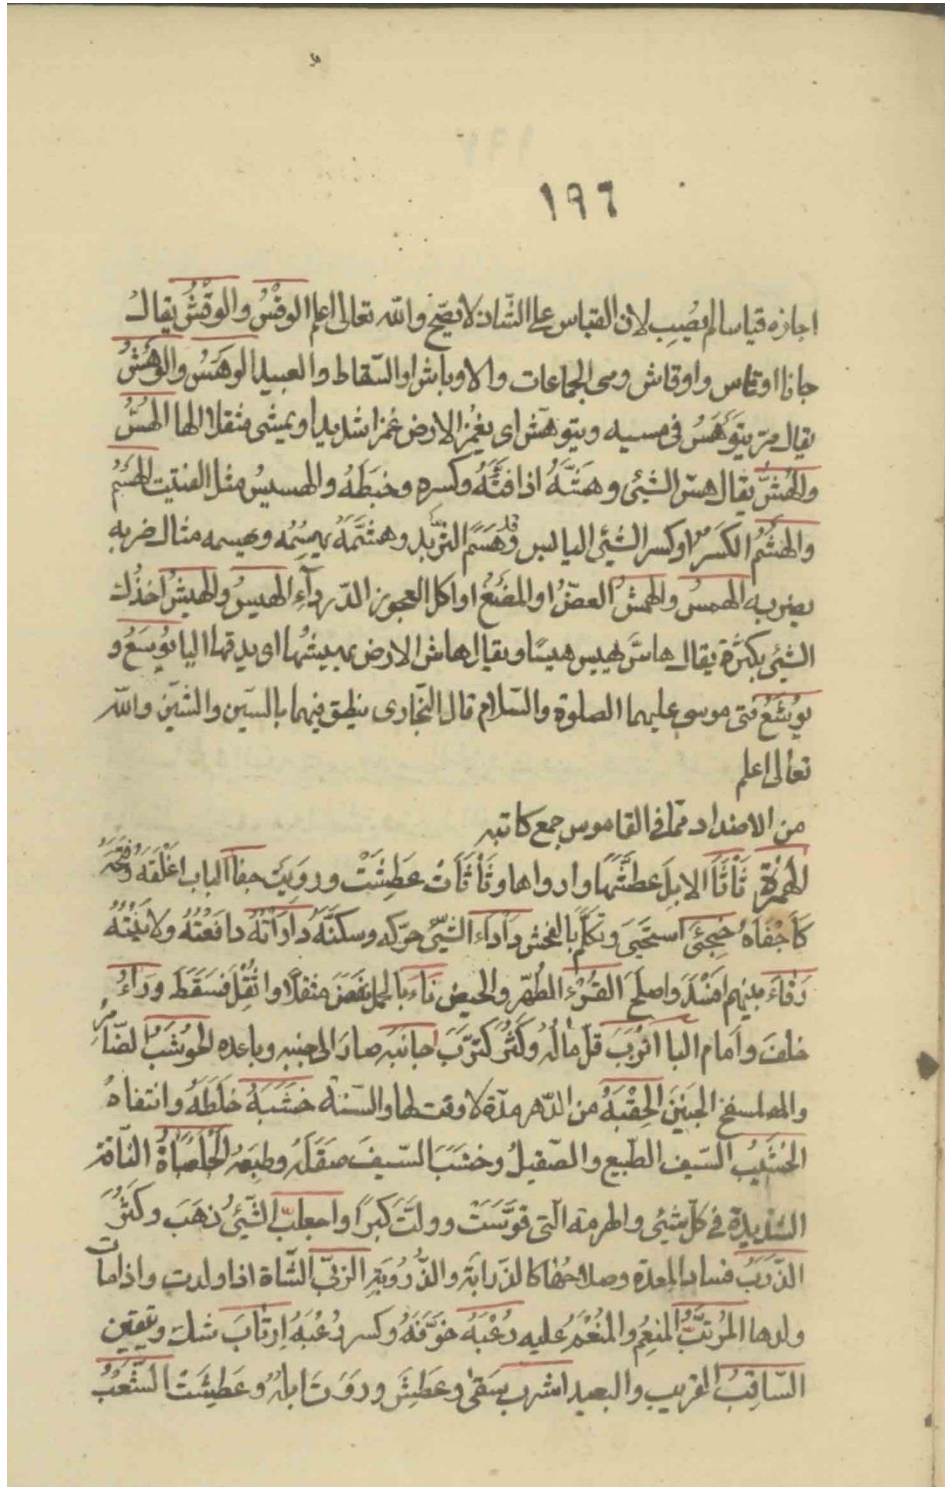 ١٩٦
اجازه قياسا لم يصب لان القياس على الشاذ لا يصح والله تعالى اعلم الوقس والوقش يقال
جانا اوقاس واوقاش وهى الجماعات والاوباش او السقاط والعبيد الوهس والوهش
يقال مرّ يتوهس فى مسيه ويتوهش اى يغمز الارض غمزا شديدا ويمشى مثقلا الها الهسّ
والهشّ يقال هسّ الشيئ وهشّه اذا فتّه وكسره وخبطه والهسيس مثل الفتيت الهسم
والهشم الكسر او كسر الشيئ اليابس وهسم الثريد وهشمه يهشمه ويهسمه مثال ضربه
يضربه الهمس والهمش العضّ او المضغ او اكل العجوز الدّردآء الهيس والهيش اخذك
الشيئ بكثرة يقال هاس يهيس هيسًا ويقال هاش الارض يهيشها اى يدقها اليا يوسع و
يوشع فتى موسى عليهما الصلوة والسلام قال البخارى ينطق فيهما بالسين والشين والله
تعالى اعلم
من الاضداد ممّا فى القاموس جمع كاتبه
الهمزة ثأثأ الابل عطّشها وارواها وثأثأت عطشت ورويت جفأ الباب اغلقه وفتحه
كاجفاه خجئ استحيى وتكلّم بالفحش دأدأ الشيئ حرّكه وسكّنه دارأته دافعته ولاينته
رفاء بينهم افسد واصلح القرء الطّهر والحيض ناء بالحمل نهض مثقلًا واثقل فسقط وراء
خلف وامام البا اترب قلّ ماله وكثر كترّب جانبه صار الى جنبه وباعده الحوشب الضّامر
والمنتفخ الجنبين الحقبة من الدّهر مدّة لا وقت لها والسنة خشبه خلطه وانتقاه
الخشيب السّيف الطّبيع والصّقيل وخشب السّيف صقله وطبعه الخلصاة الناقة
الشديدة فى كلّ شيئ والهرمة الّتى قوّست وولّت كبرًا واجعلبّ الشّيئ ذهب وكثر
الذّرب فساد المعدة وصلاحها كالذرابة والذّروبة الرّبّى الشّاة اذا ولدت واذا مات
ولدها المرتبّ المنعم والمنعم عليه رعبه خوّفه وكسر رعبه ارتاب شكّ وتيقّن
السّاقب القريب والبعيد اشرب سقى وعطش ورويت ابله وعطشت الشّعب